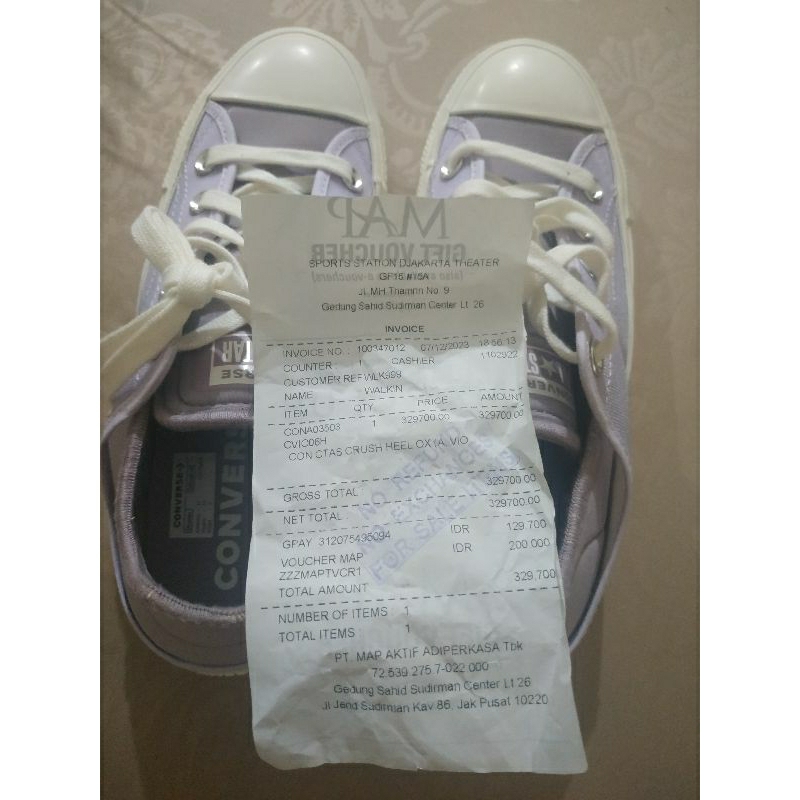 MAP
GIFT VOUCHER
SPORTS STATION DJAKARTA THEATER
GF15 #15A
Jl. MH Thamrin No. 9
Gedung Sahid Sudirman Center Lt. 26
INVOICE
INVOICE NO. : 100347012 07/12/2023 18:56:13
COUNTER 1 CASHIER 1102922
CUSTOMER REF WLK999
NAME WALKIN
ITEM QTY PRICE AMOUNT
CONA03503 1 329700.00 329700.00
CVIC06H
CON CTAS CRUSH HEEL OX (A. VIO
GROSS TOTAL 329700.00
NET TOTAL 329700.00
GPAY 312075495094 IDR 129.700
VOUCHER MAP IDR 200.000
ZZZMAPTVCR1
TOTAL AMOUNT 329.700
NUMBER OF ITEMS : 1
TOTAL ITEMS : 1
PT. MAP AKTIF ADIPERKASA Tbk
72.539.275.7-022.000
Gedung Sahid Sudirman Center Lt 26
Jl Jend Sudirman Kav 86, Jak Pusat 10220
NO REFUND
NO EXCHANGES
FOR SALE
CONVERSE
STAR
CONVERSE
CONVERSE